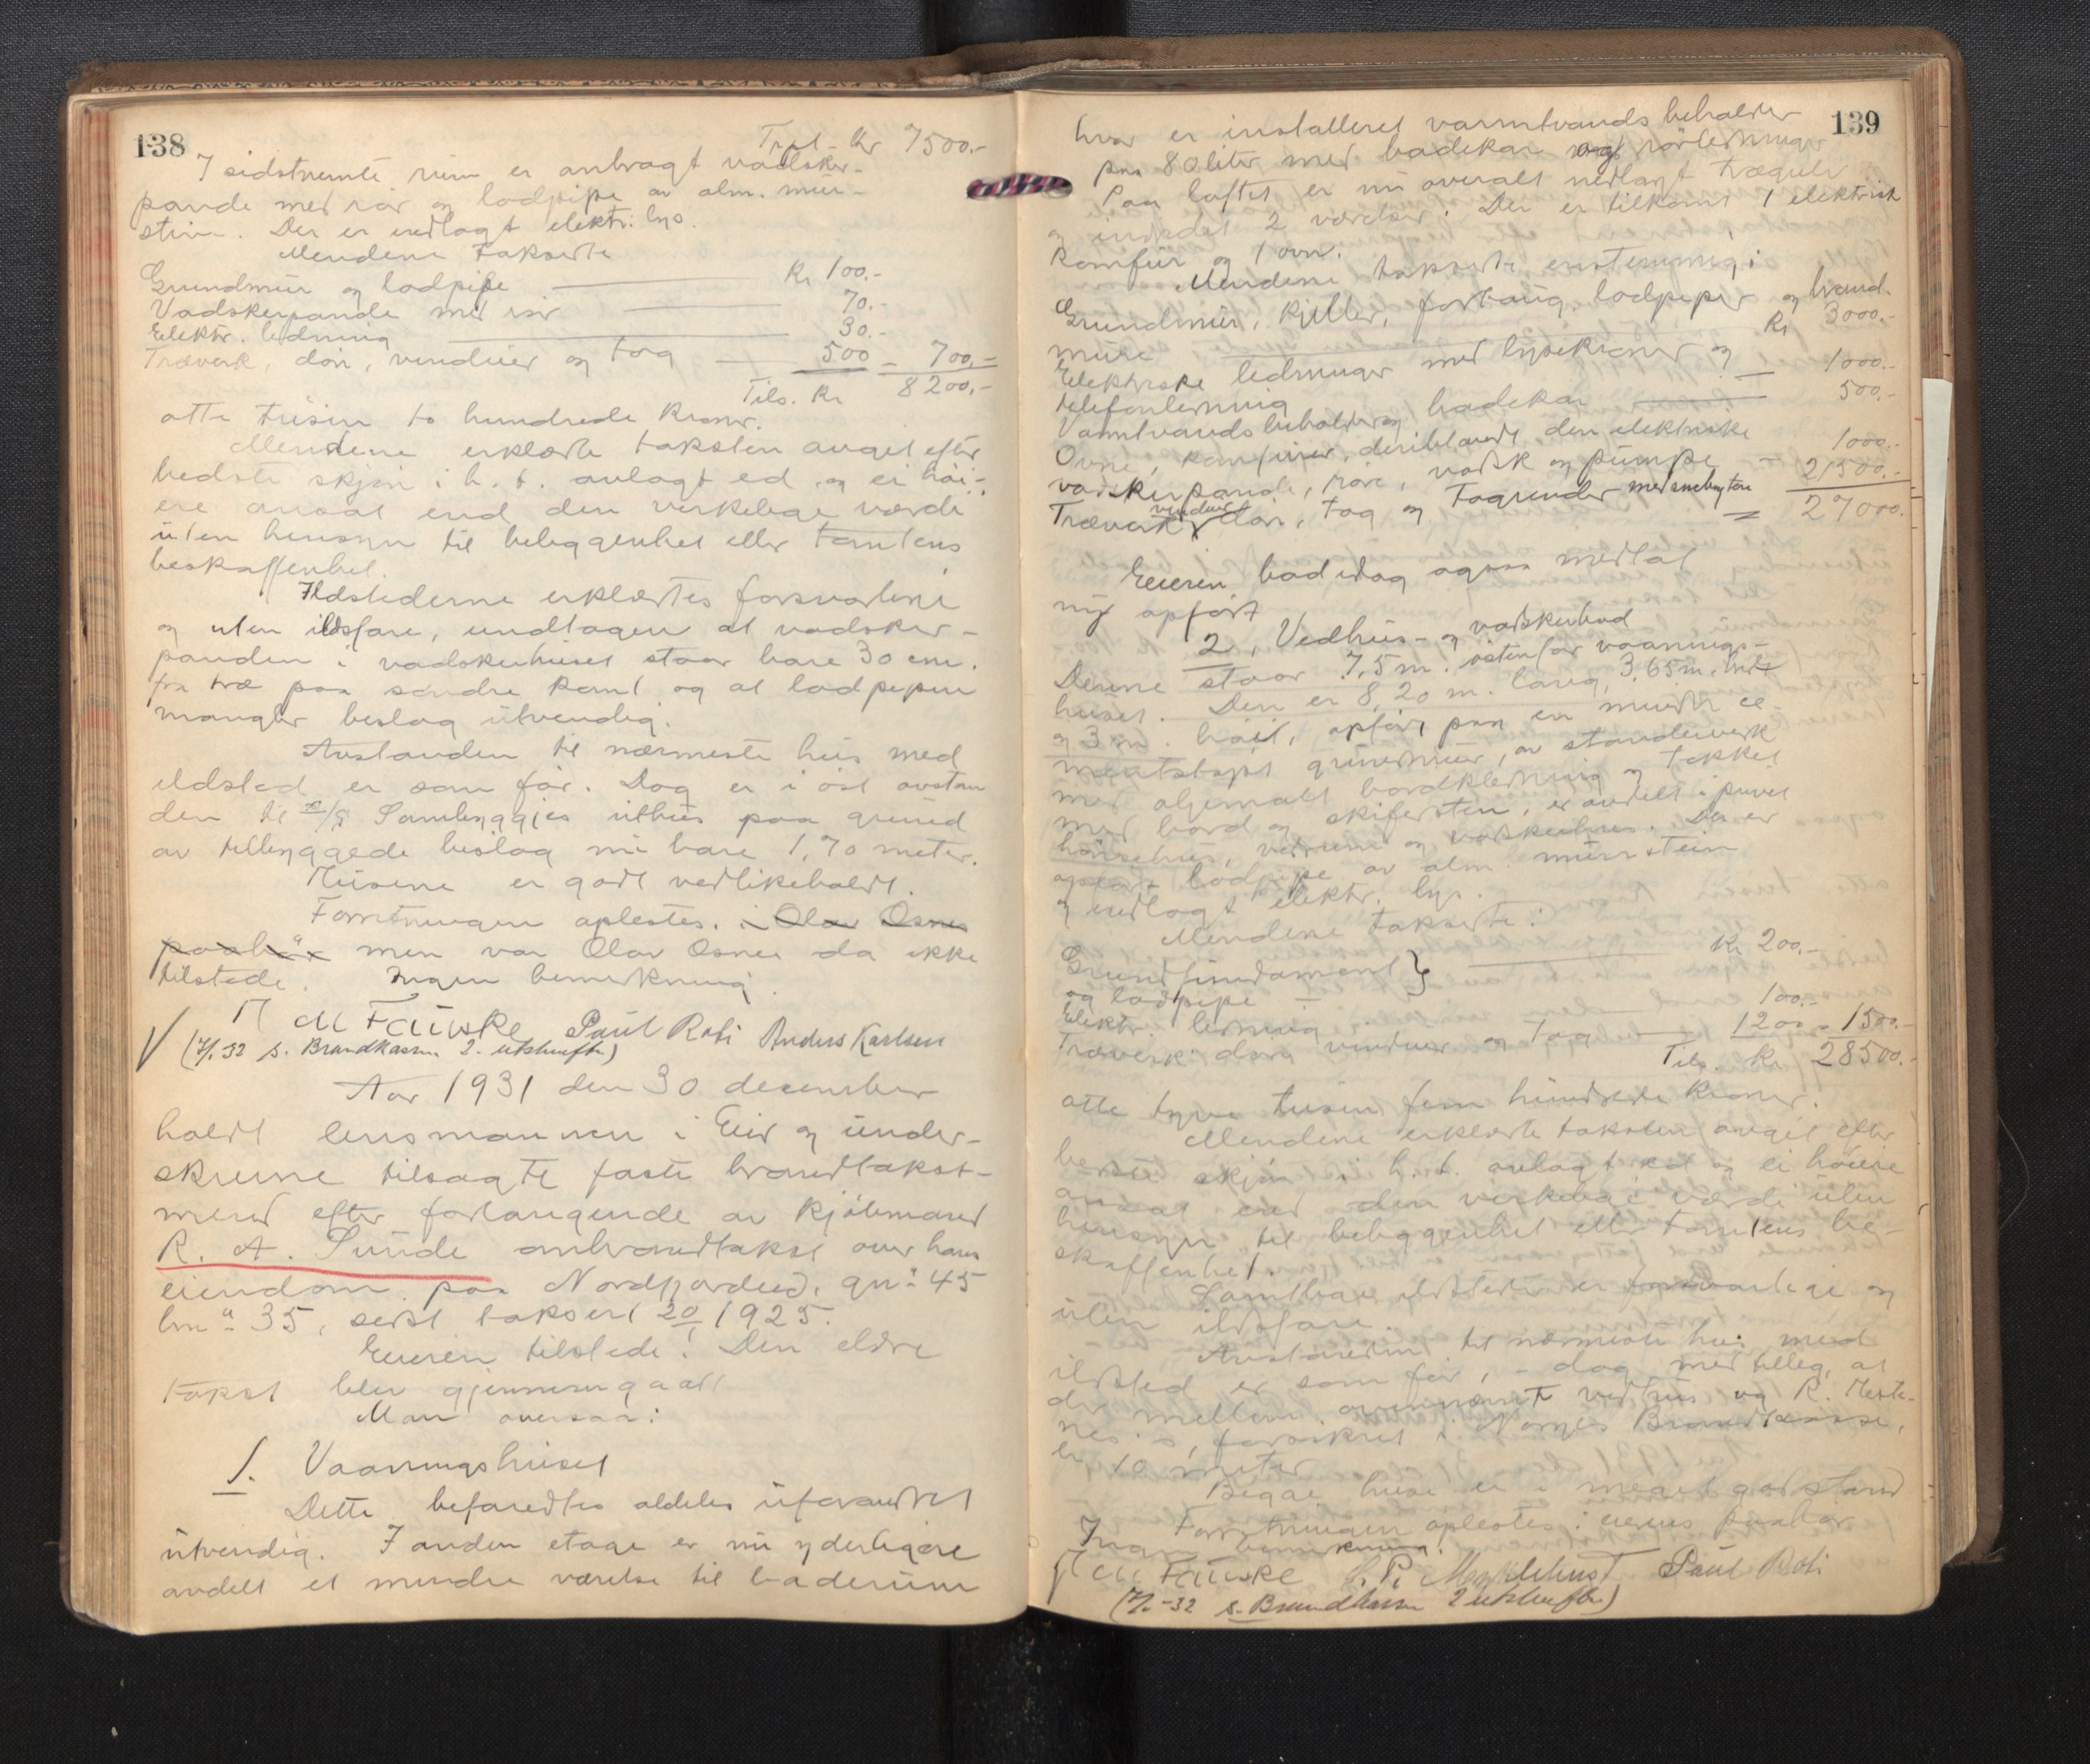 138
Trpt. Kr 7500.-
I sidstnemte rum er anbragt vadsker-
pande med rör og lodpipe av alm. mur-
stein. Der er indlagt elektr. lys.
Mendene takserte
Grundmur og lodpipe Kr 100.-
Vadskerpande med rör 70.-
Elektr. ledning 30.-
Træverk, dör, vinduer og tag 500 = 700.-
Tils. Kr 8200.-
otte tusin to hundrede kroner.
Mendene erklærte taksten avgit efter
bedste skjön i h. t. avlagt ed og ei höi-
ere ansat end den verkelege værdi
uten hensyn til beliggenhet eller tomtens
beskaffenhet.
Ildstederne erklærtes forsvarlige
og uten ildsfare, undtagen at vadsker-
panden i vadskerhuset staar bare 30 cm.
fra træ paa söndre kant og at lodpipen
mangler beslag utvendig.
Avstanden til nærmeste hus med
ildsted er som för. Dog er i öst avstan
den til Samhyggjes uthus paa grund
av tilbyggede beslag nu bare 1,70 meter.
Husene er godt vedlikeholdt.
Forretningen oplestes. i Olav Osnes
paahör men var Olav Osnes da ikke
tilstede. Ingen bemerkning.
M Fauske Paul Roti Anders Karlsen
(7/1.32 s. Brandkassen 2. utskrifter)
Aar 1931 den 30 december
holdt lensmannen i Eid og under-
skrevne tilsagte faste brandtakst-
mend efter forlangende av kjöbmand
R. A. Sunde ombrandtakst over hans
eiendom paa Nordfjordeid, gnr 45
bnr 35, sidst taksert 20/1 1925.
Eieren tilstede. Den eldre
takst blev gjennemgaatt
Man oversaa:
1. Vaaningshuset
Dette befandtes aldeles uforandret
utvendig. I anden etage er nu yderligere
avdelt et mindre værelse til baderum
139
hvor er installeret varmtvandsbeholder
paa 80 liter med badekar og rörledninger
Paa loftet er nu overalt nedlagt trægulv
og indredet 2 værelser. Der er tilkomt 1 elektrisk
komfur og 1 ovn.
Mendene takserte enstemmig:
Grundmur, kjeller, forhaug, lodpiper og brand-
mure Kr 3000.-
Elektriske ledninger med lysekroner og
telefonledning 1000.-
Varmtvandsbeholder og badekar 500.-
Ovne, komfurer, deriblandt den elektriske
vadskerpande, röre, vask og pumpe 1000.-
Træverk, vinduer dör, tag og tagrender med snebrytere 21500.-
= 27000.
Eieren bad idag ogsaa medtat
ny opfört
2, Vedhus- og vaskerbod
Denne staar 7,5 m. östenfor vaanings-
huset. Den er 8,20 m. lang, 3,65 m. bred
og 3 m. höit, opfört paa en mindre ce-
mentstöpt grundmur, av standerverk
med oljemalt bordklædning og tekket
med bord og skifersten, er avdelt i privet
hönsehus, vedrum og vaskerhus. Der er
opfört lodpipe av alm. murstein
og indlagt elektr. lys.
Mendene takserte:
Grundfundament }
og lodpipe Kr 200.-
Elektr. ledning 100.-
Træverk dörer vinduer og tag 1200 = 1500.-
Tils. Kr 28500.-
otte tyve tusin fem hundrede kroner.
Mendene erklærte taksten avgit efter
bedste skjön i h. t. avlagt ed og ei höiere
ansat end den verkelige værdi uten
hensyn til beliggenhet eller tomtens be-
skaffenhet.
Samtlige ildsteder er forsvarlige og
uten ildsfare.
Avstanden til nærmeste hus med
ildsted er som för, - dog med tilleg, at
der mellem ovennemt vedhus og R. Heste-
nes's, forsikret i Norges Brandkasse,
er 10 meter
Begge huse er i meget god stand
Forretningen oplestes i eierens paahör
Ingen bemerkning.
M Fauske Paul Roti
(7/1-32 s. Brandkassen 2 utskrifter)